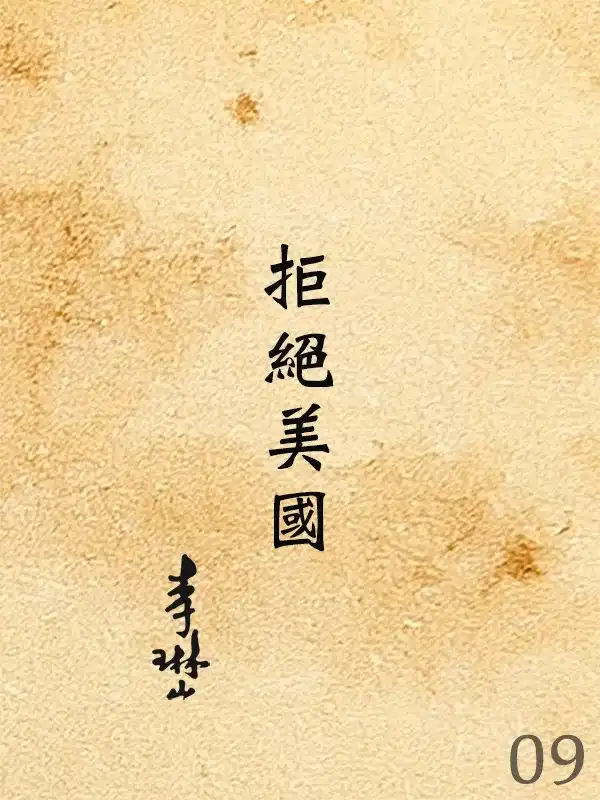 拒絕美國
李琳山
09